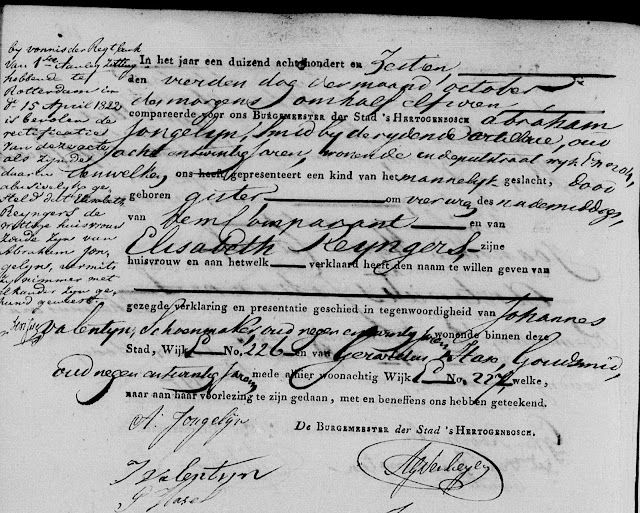 bij vonnis der Regtbank
van 1ste Aanleg Zitting
hebbende te
Rotterdam in
d. 15 April 1822
is bevolen de
rectificatie
van deze acte
als zijnde
daarin
abusivelijk ge
steld dat Elisabeth
Reyngers de
wettige huisvrouw
zoude zijn van
Abraham Jon
gelijn, vermits
zij nimmer met
elkander zijn ge
huwd geweest.
In het jaar een duizend achthonderd en Zestien
den vierden dag der maand october
des morgens om half elf uren
compareerde voor ons BURGEMEESTER der Stad 's HERTOGENBOSCH abraham
Jongelijn, Smid bij de rydende artillerie, oud
acht en twintig Jaren, wonende in de putstraat wyk
Denwelke, ons heeft gepresenteerd een kind van het mannelyk geslacht, dood
geboren gister om vier uren des nademiddags,
van hem Comparant en van
Elisabeth Reyngers zijne
huisvrouw en aan hetwelk verklaard heeft den naam te willen geven van
gezegde verklaring en presentatie geschied in tegenwoordigheid van Johannes
Valentyn, Schoenmaker, oud negen en twintig Jaren, wonende binnen deze
Stad, Wijk No. 226 en van Gerardus Hax, Goudsmid,
oud negen en twintig Jaren mede alhier woonachtig Wijk No. 227 welke,
naar aan haar voorlezing te zijn gedaan, met en beneffens ons hebben geteekend.
A. Jongelijn
De BURGEMEESTER der Stad 's HERTOGENBOSCH.
J Valentyn
AGVerheyen